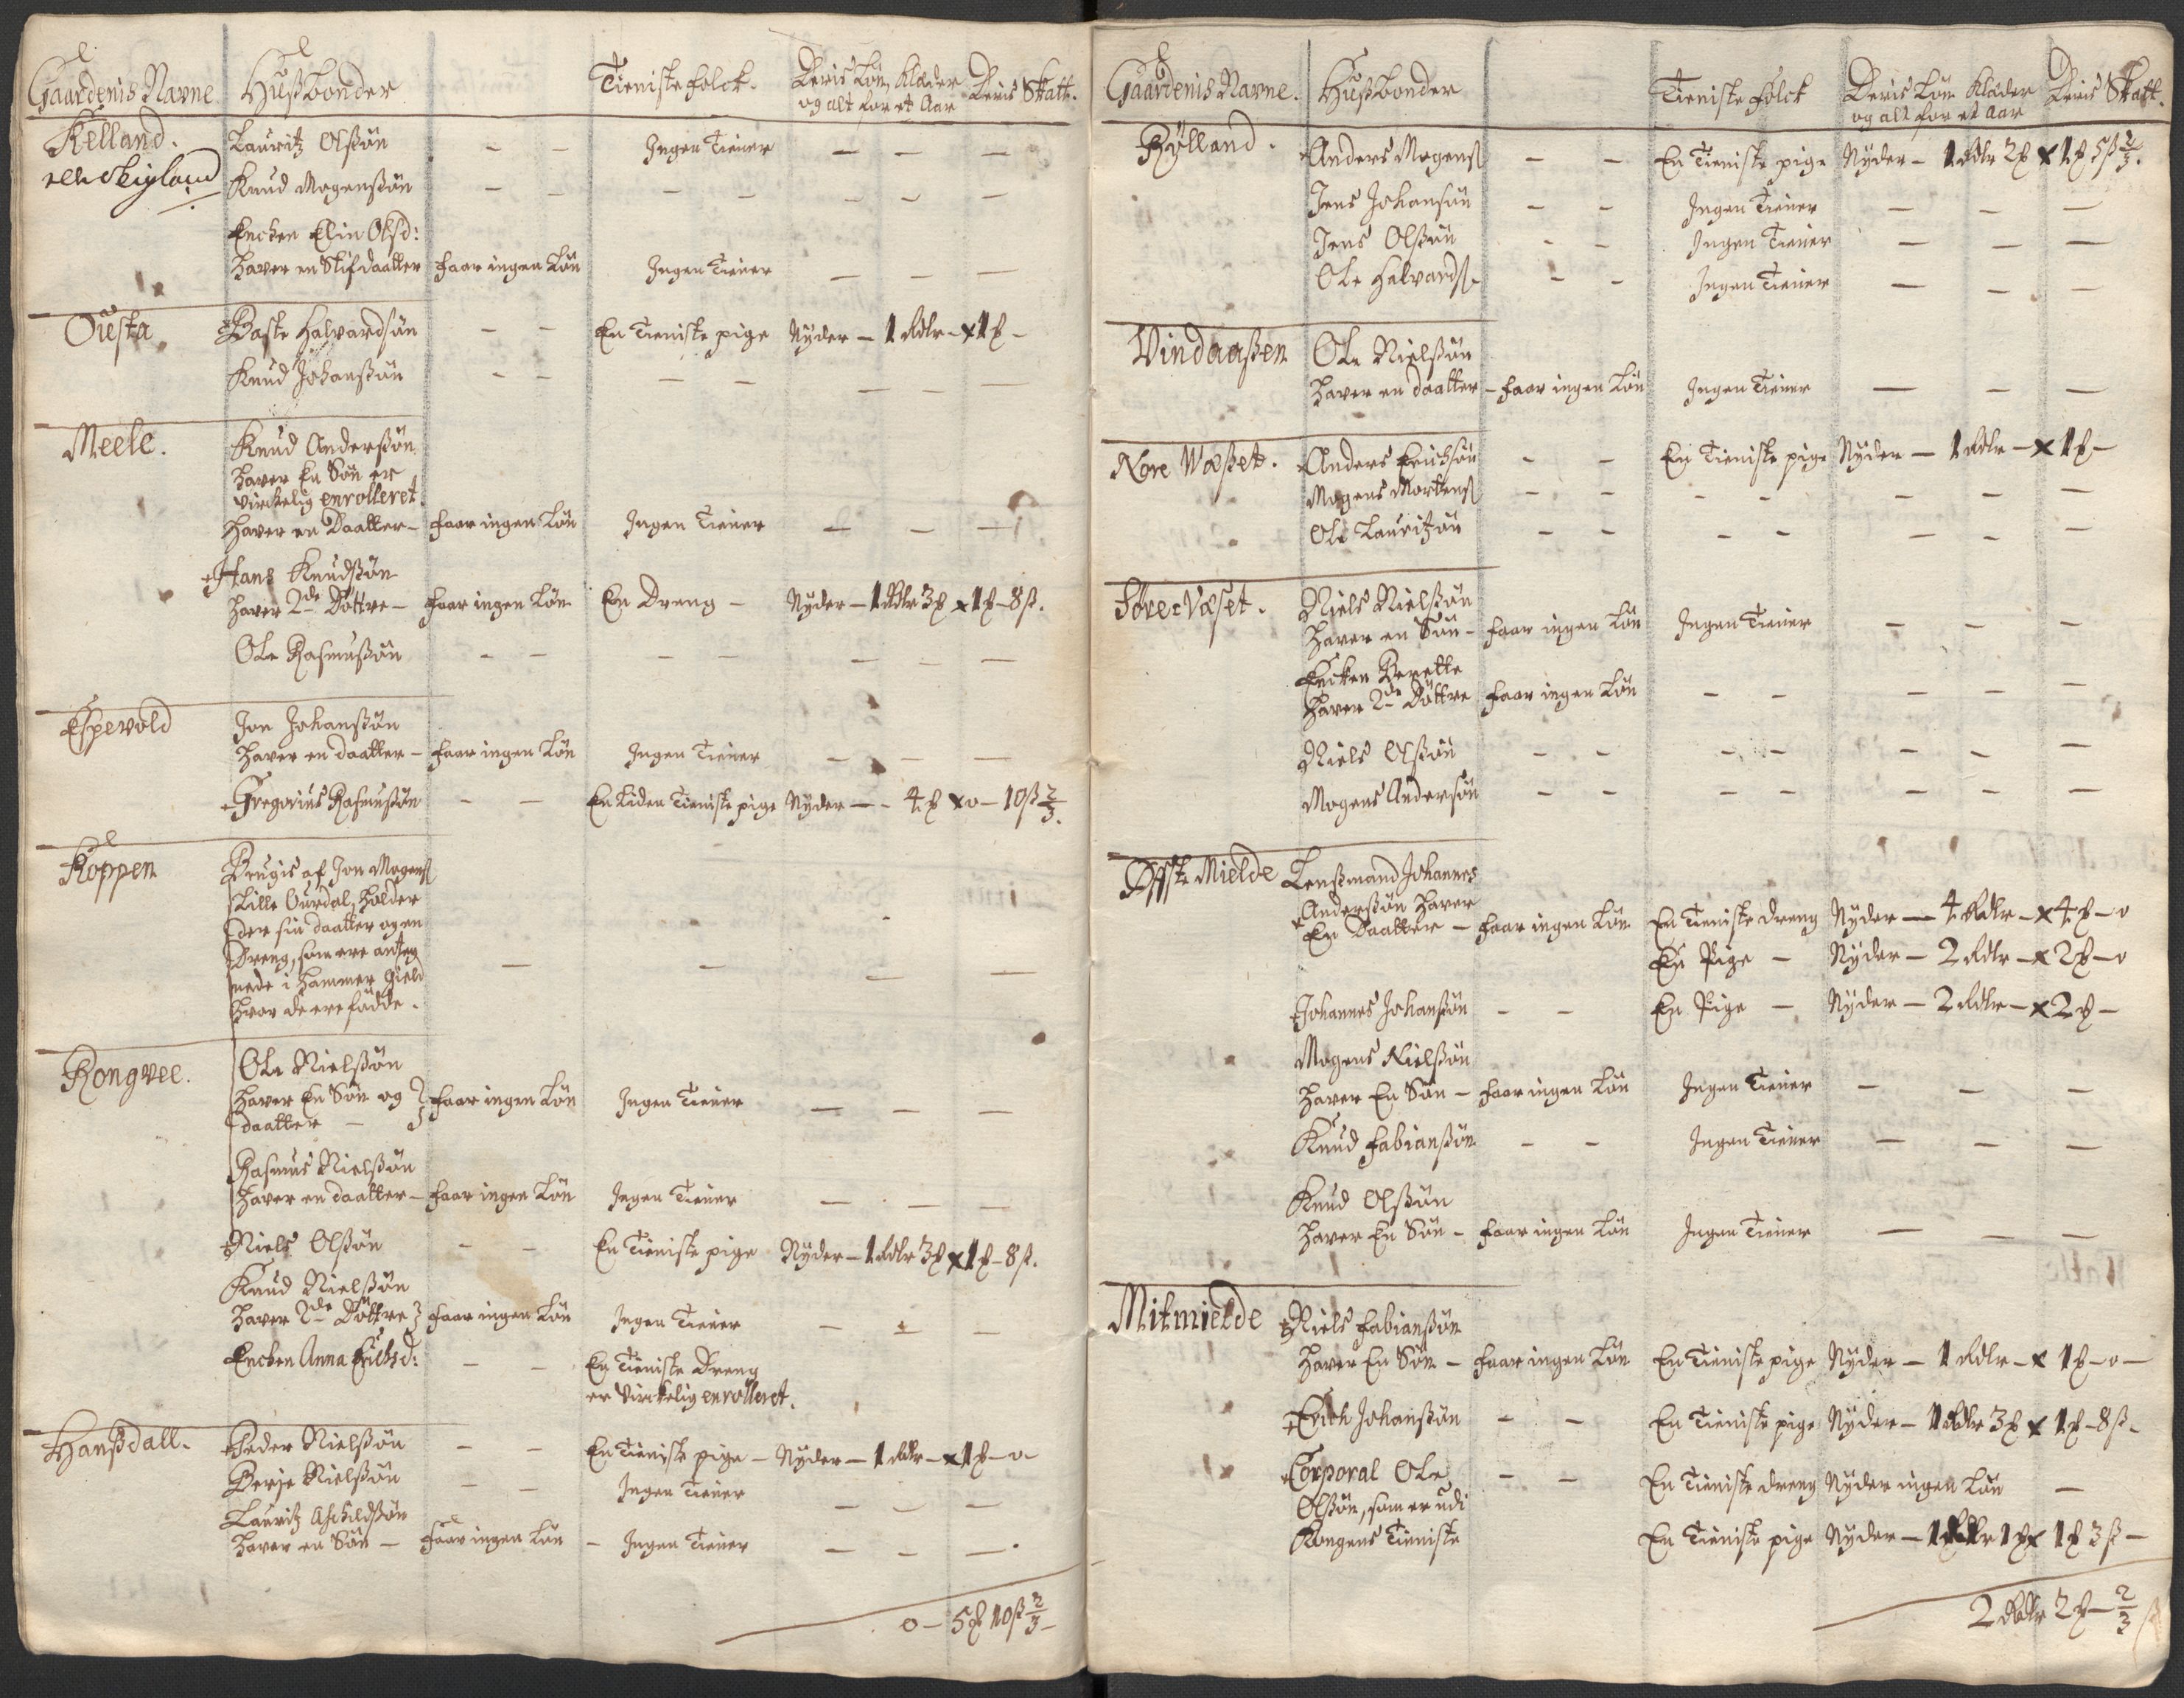 Gaardenis Navne Hußbonder Tieniste folck. Deris Løn, Klæder og alt for et Aar Deris Skatt.
Kelland. Lauritz Olßøn - - Ingen Tiener - - -
Knud Mogenßøn - - - - - - -
Encken Elin Olsd:
haver en Stifdaatter faar ingen Løn Ingen Tiener - - -
Baste Halvardsøn - - En Tieniste pige Nyder - 1 Rdlr - x 1 ℔ -
Knud Johanßøn - - - - - - -
Meele. Knud Anderßøn
haver En Søn er
virkelig enrolleret.
haver en Daatter - faar ingen Løn Ingen Tiener - - -
+ Hans Knudßøn
haver 2de Døttre - faar ingen Løn En Dreng - Nyder - 1 Rdlr 3 ℔ x 1 ℔ - 8 ß.
Ole Rasmußøn - - - - - - -
Espevold Jon Johanßøn
haver en daatter - faar ingen Løn Ingen Tiener - - -
+ Gregorius Rasmußøn - - En liden Tieniste pige Nyder - - 4 ℔ x o - 10 ß 2/3.
Koppen Brugis af Jon Mogenß
Lille Ourdal, holder
der sin daatter og en
Dreng, som ere anteg
nede i Hammer Gield
hvor de ere fødde. - - - -
Rongvee. Ole Nielßøn
haver En Søn og faar ingen Løn Ingen Tiener - - -
daatter -
Rasmus Nielßøn
haver en daatter - faar ingen Løn Ingen Tiener - - -
+ Niels Olßøn - - En Tieniste pige Nyder - 1 Rdlr 3 ℔ x 1 ℔ - 8 ß.
Knud Nielßøn
haver 2de Døttre faar ingen Løn Ingen Tiener - - -
Encken Anna Erichsd: - - En Tieniste Dreng
er virkelig enrolleret.
Hanßdall. + Peder Nielßøn - - En Tieniste pige - Nyder - 1 Rdlr - x 1 ℔ - o -
Berje Nielßøn - - Ingen Tiener - - -
Lauritz Aschildßøn
haver en Søn - faar ingen Løn - Ingen Tiener - - -
o - 5 ℔ 10 ß 2/3 -
Gaardenis Navne. Hußbonder Tieniste folck Deris Løn Klæder og alt for et Aar Deris Skatt.
Rylland. + Anders Mogenß - - En Tieniste pige Nyder - 1 Rdlr 2 ℔ x 1 ℔ 5 ß 1/3.
Jens Johansøn - - Ingen Tiener - - -
Jens Olßøn - - Ingen Tiener - - -
Ole Halvardß. - - Ingen Tiener - - -
Vindaaßen Ole Nielßøn
haver en daatter - faar ingen Løn Ingen Tiener - - -
Nore Wæßet. + Anders Erichsøn - - En Tieniste pige Nyder - 1 Rdlr - x 1 ℔ -
Mogens Mortenß - - - - - - -
Ole Lauritzøn - - - - - - -
Søre Væset. Niels Nielßøn
haver en Søn - faar ingen Løn Ingen Tiener - - -
Encken Berette
haver 2de Døttre faar ingen Løn - - - - -
Niels Olßøn - - - - - - -
Mogens Andersøn - - - - - - -
Øfste Mielde Lensßmand Johannes
+ Anderßøn haver
En Daatter - faar ingen Løn En Tieniste dreng Nyder - 4 Rdlr - x 4 ℔ - o
En Pige - Nyder - 2 Rdlr - x 2 ℔ - o
+ Johannes Johanßøn - - En Pige - Nyder - 2 Rdlr - x 2 ℔ -
Mogens Nielßøn
haver En Søn - faar ingen Løn Ingen Tiener - - -
Knud Fabianßøn - - Ingen Tiener - - -
Knud Olßøn
haver En Søn - faar ingen Løn Ingen Tiener - - -
Mitmielde + Niels Fabianßøn
haver En Søn - faar ingen Løn En Tieniste pige Nyder - 1 Rdlr - x 1 ℔ - o -
+ Erich Johanßøn - - En Tieniste pige Nyder - 1 Rdlr 3 ℔ x 1 ℔ - 8 ß -
+ Corporal Ole - - En Tieniste dreng Nyder ingen Løn -
Olßøn, som er udi
Kongens Tieniste En Tieniste pige Nyder - 1 Rdlr 1 ℔ x 1 ℔ 3 ß -
2 Rdlr 2 ℔ - 2/3 ß